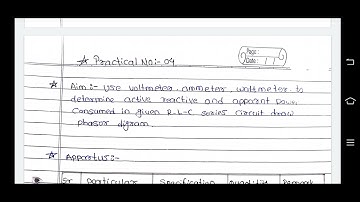 Page:
Date: 11
* Practical No:- 04
* Aim:- Use voltmeter, ammeter, wattmeter to
determine active reactive and apparent power
Consumed in given R-L-C series circuit draw
phasor digram.
* Appartus:-
Sr particular Specification Quantity Remark